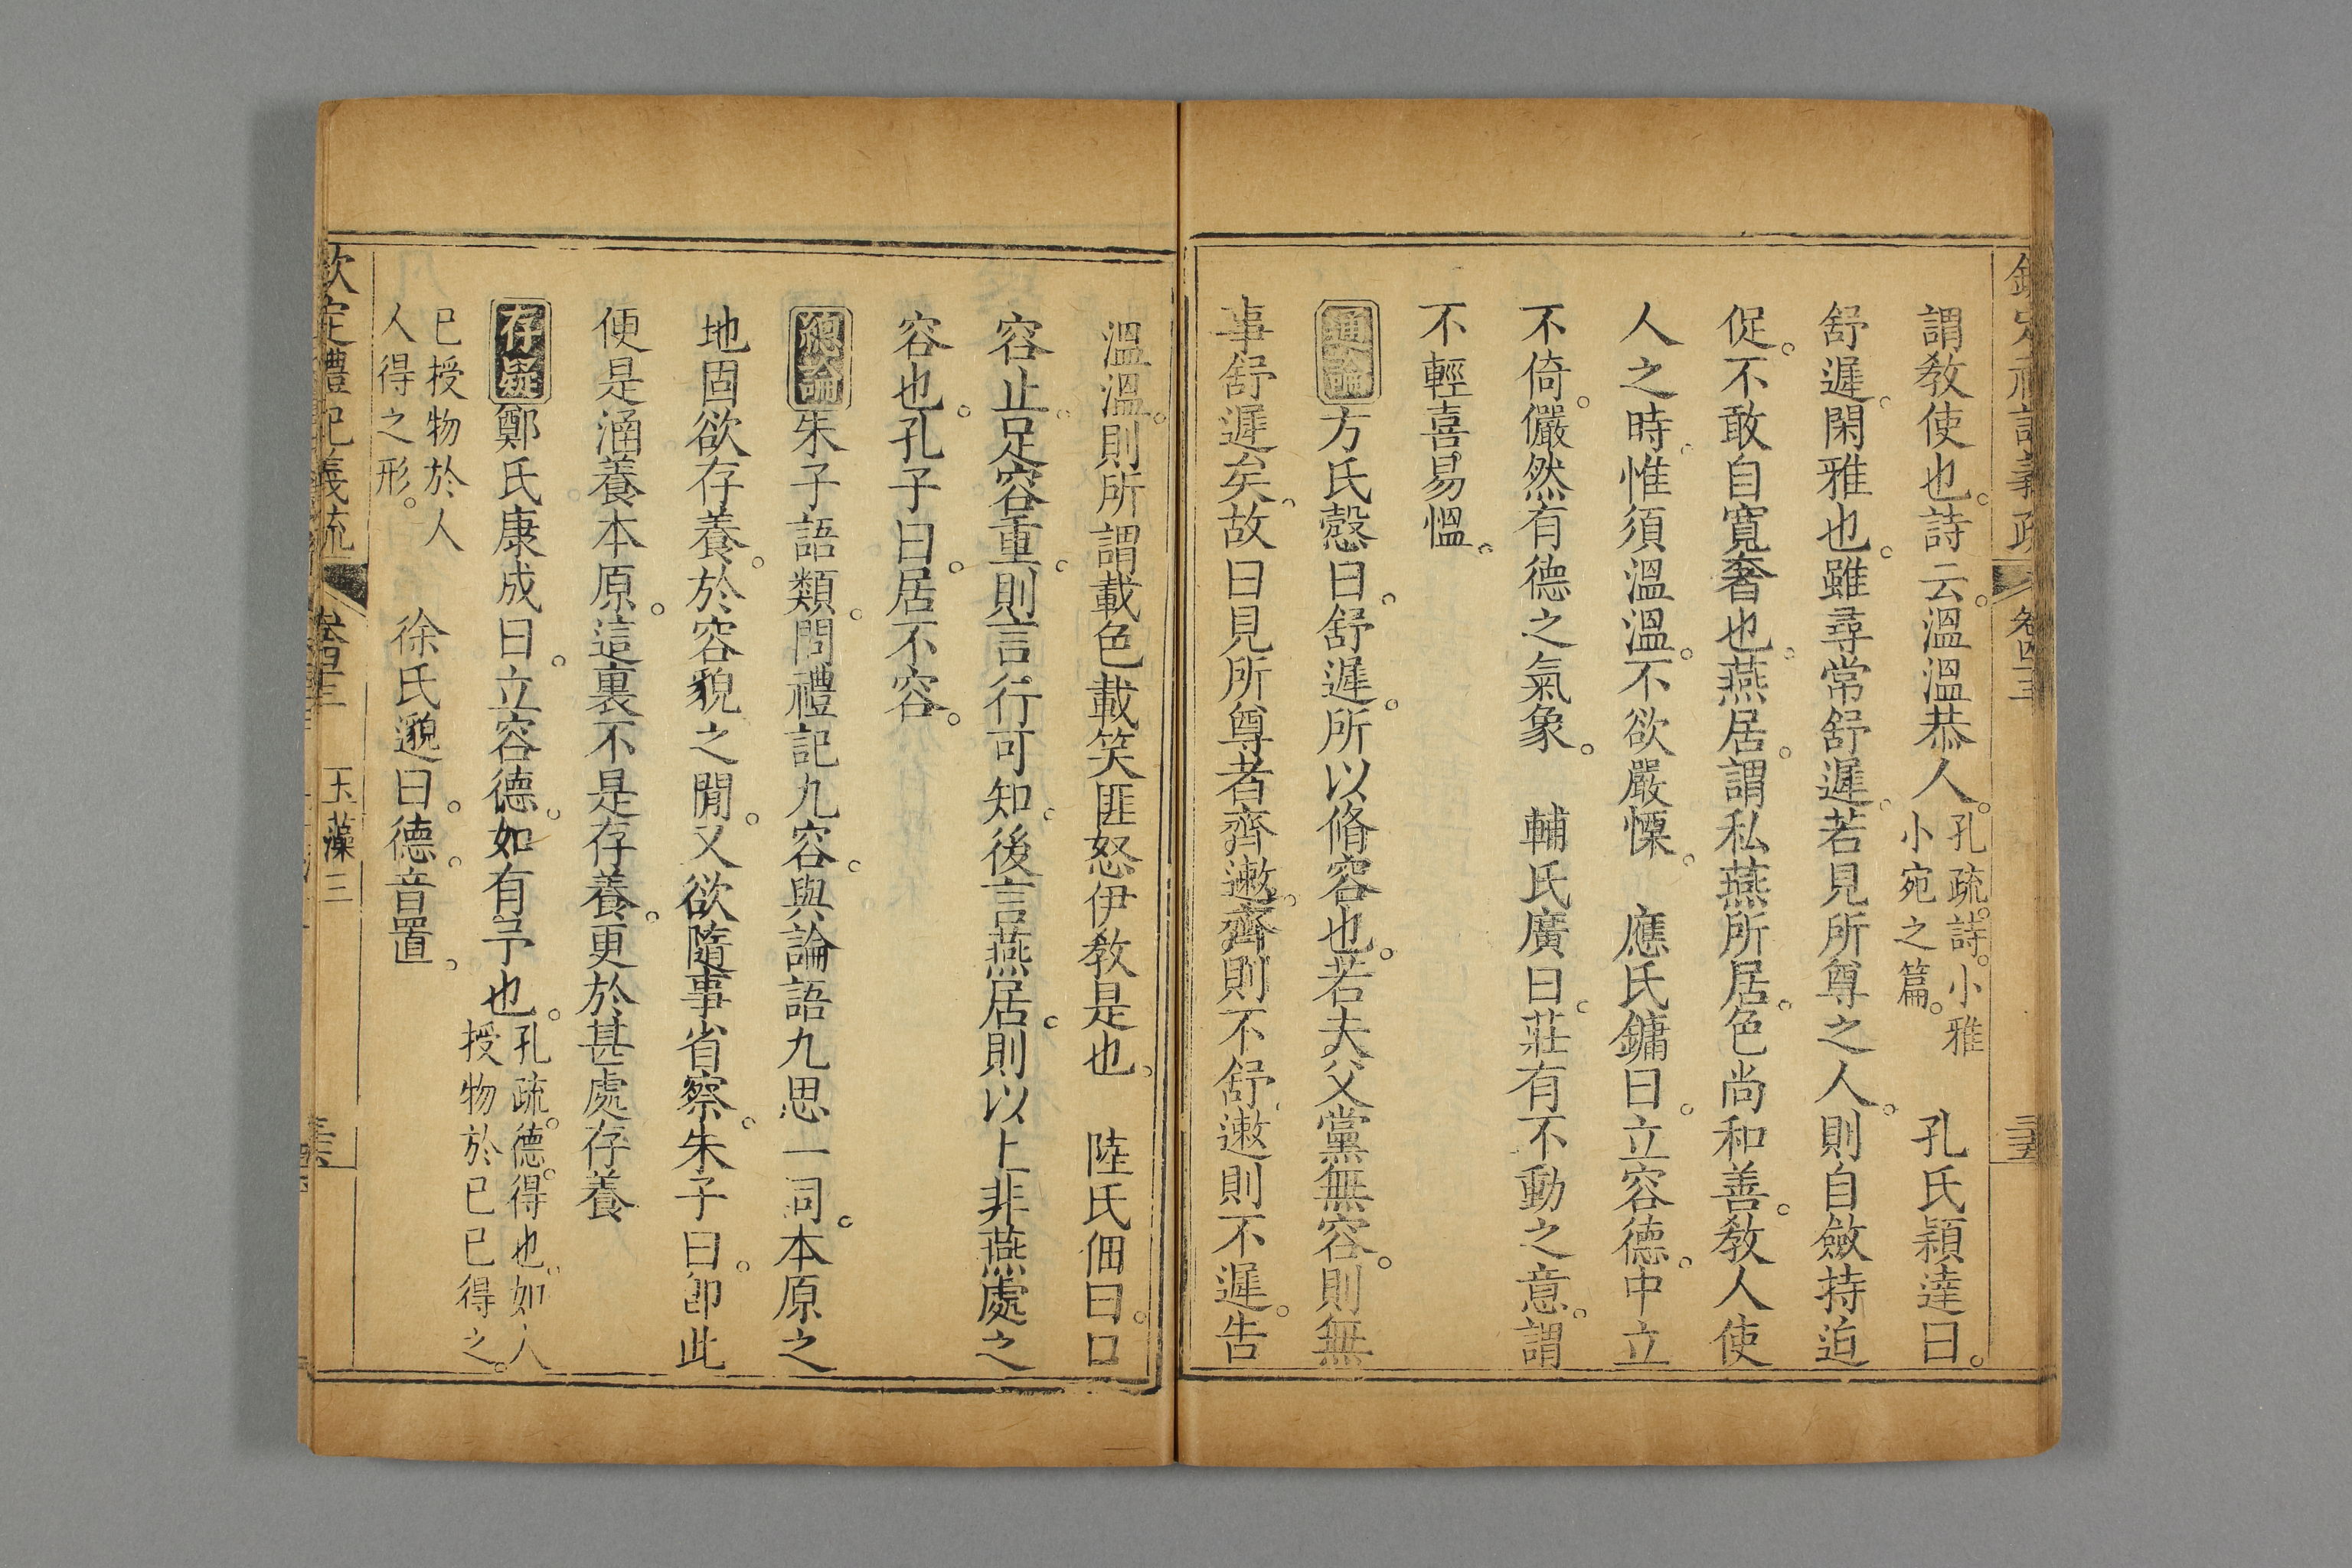 欽定禮記義疏 卷四十三 三五
謂敎使也。詩云。溫溫恭人。孔疏。詩。小雅小宛之篇。 孔氏穎達曰。
舒遲。閑雅也。雖尋常舒遲。若見所尊之人。則自斂持迫
促。不敢自寬奢也。燕居。謂私燕所居。色尚和善。敎人使
人之時。惟須溫溫。不欲嚴慄。 應氏鏞曰。立容德。中立
不倚。儼然有德之氣象。 輔氏廣曰。莊有不動之意。謂
不輕喜易慍。
通論方氏慤曰。舒遲。所以脩容也。若夫父黨無容。則無
事舒遲矣。故曰見所尊者齊遬。齊則不舒。遬則不遲。告
溫溫。則所謂載色載笑匪怒伊敎是也。 陸氏佃曰。口
容止。足容重。則言行可知。後言燕居。則以上非燕處之
容也。孔子曰。居不容。
總論朱子語類。問禮記九容。與論語九思一同。本原之
地固欲存養。於容貌之閒。又欲隨事省察。朱子曰。卽此
便是涵養本原。這裏不是存養。更於甚處存養
存疑鄭氏康成曰。立容德。如有予也。孔疏。德。得也。如人授物於己。己得之。
已授物於人人得之形。 徐氏邈曰。德。音置。
欽定禮記義疏 卷四十三 玉藻三